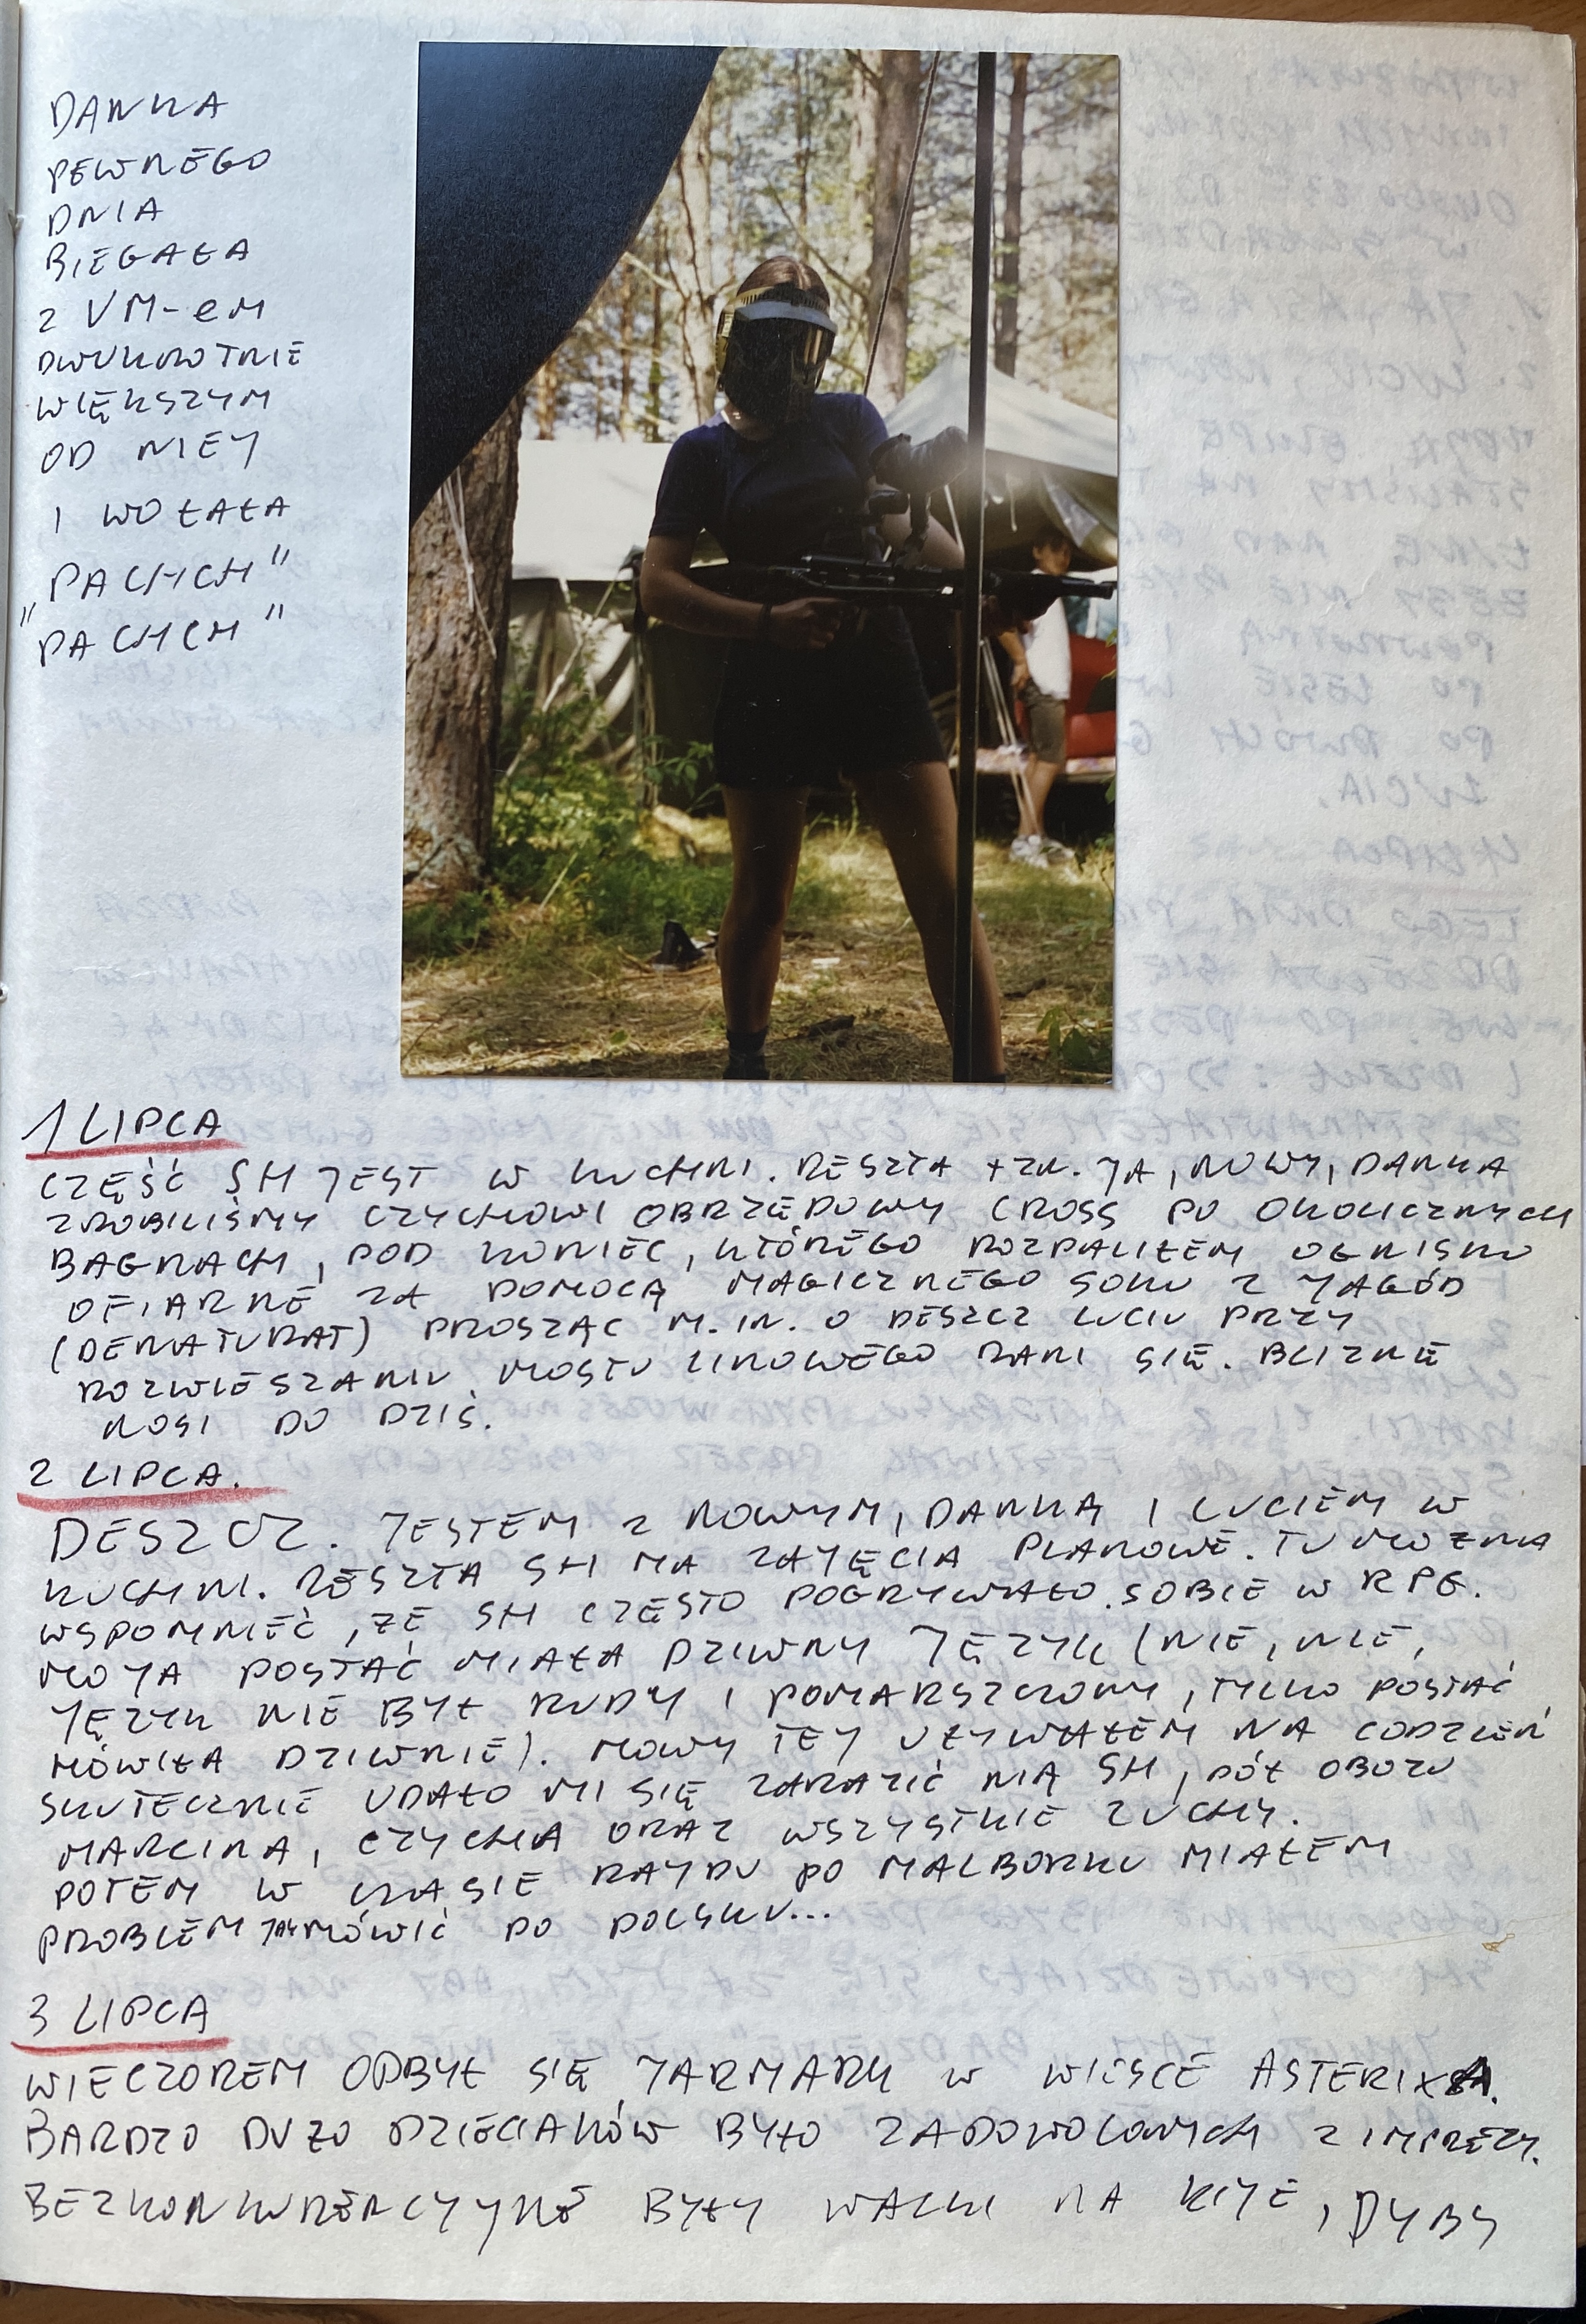 DANKA
PEWNEGO
DNIA
BIEGAŁA
Z VM-em
DWUKROTNIE
WIĘKSZYM
OD NIEJ
I WOŁAŁA
"PACHCH"
"PACHCH"
1 LIPCA
CZĘŚĆ SH JEST W KUCHNI. RESZTA TZN. JA, NOWY, DANKA
ZROBILIŚMY CZYCHOWI OBRZĘDOWY CROSS PO OKOLICZNYCH
BAGNACH, POD KONIEC, KTÓREGO ROZPALIŁEM OGNISKO
OFIARNE ZA POMOCĄ MAGICZNEGO SOKU Z JAGÓD
(DENATURAT) PROSZĄC M.IN. O DESZCZ LUCIU PRZY
ROZWIESZANIU MOSTU LINOWEGO RANI SIĘ. BLIZNĘ
NOSI DO DZIŚ.
2 LIPCA.
DESZCZ. JESTEM Z NOWYM, DANKĄ I LUCIEM W
KUCHNI. RESZTA SH MA ZAJĘCIA PLANOWE. TU MOŻNA
WSPOMNIEĆ, ŻE SH CZĘSTO POGRYWAŁO SOBIE W RPG.
MOJA POSTAĆ MIAŁA DZIWNY JĘZYK (NIE, NIE,
JĘZYK NIE BYŁ RUDY I POMARSZCZONY, TYLKO POSTAĆ
MÓWIŁA DZIWNIE). MOWY TEJ UŻYWAŁEM NA CODZIEŃ
SKUTECZNIE UDAŁO MI SIĘ ZARAZIĆ NIĄ SH, PÓŁ OBOZU
MARCINA, CZYCHA ORAZ WSZYSTKIE ZUCHY.
POTEM W CZASIE RAJDU PO MALBORKU MIAŁEM
PROBLEM JAK MÓWIĆ PO POLSKU...
3 LIPCA
WIECZOREM ODBYŁ SIĘ JARMARK W WIOSCE ASTERIXA.
BARDZO DUŻO DZIECIAKÓW BYŁO ZADOWOLONYCH Z IMPREZY.
BEZKONKURENCYJNE BYŁY WALKI NA KIJE, DYBY